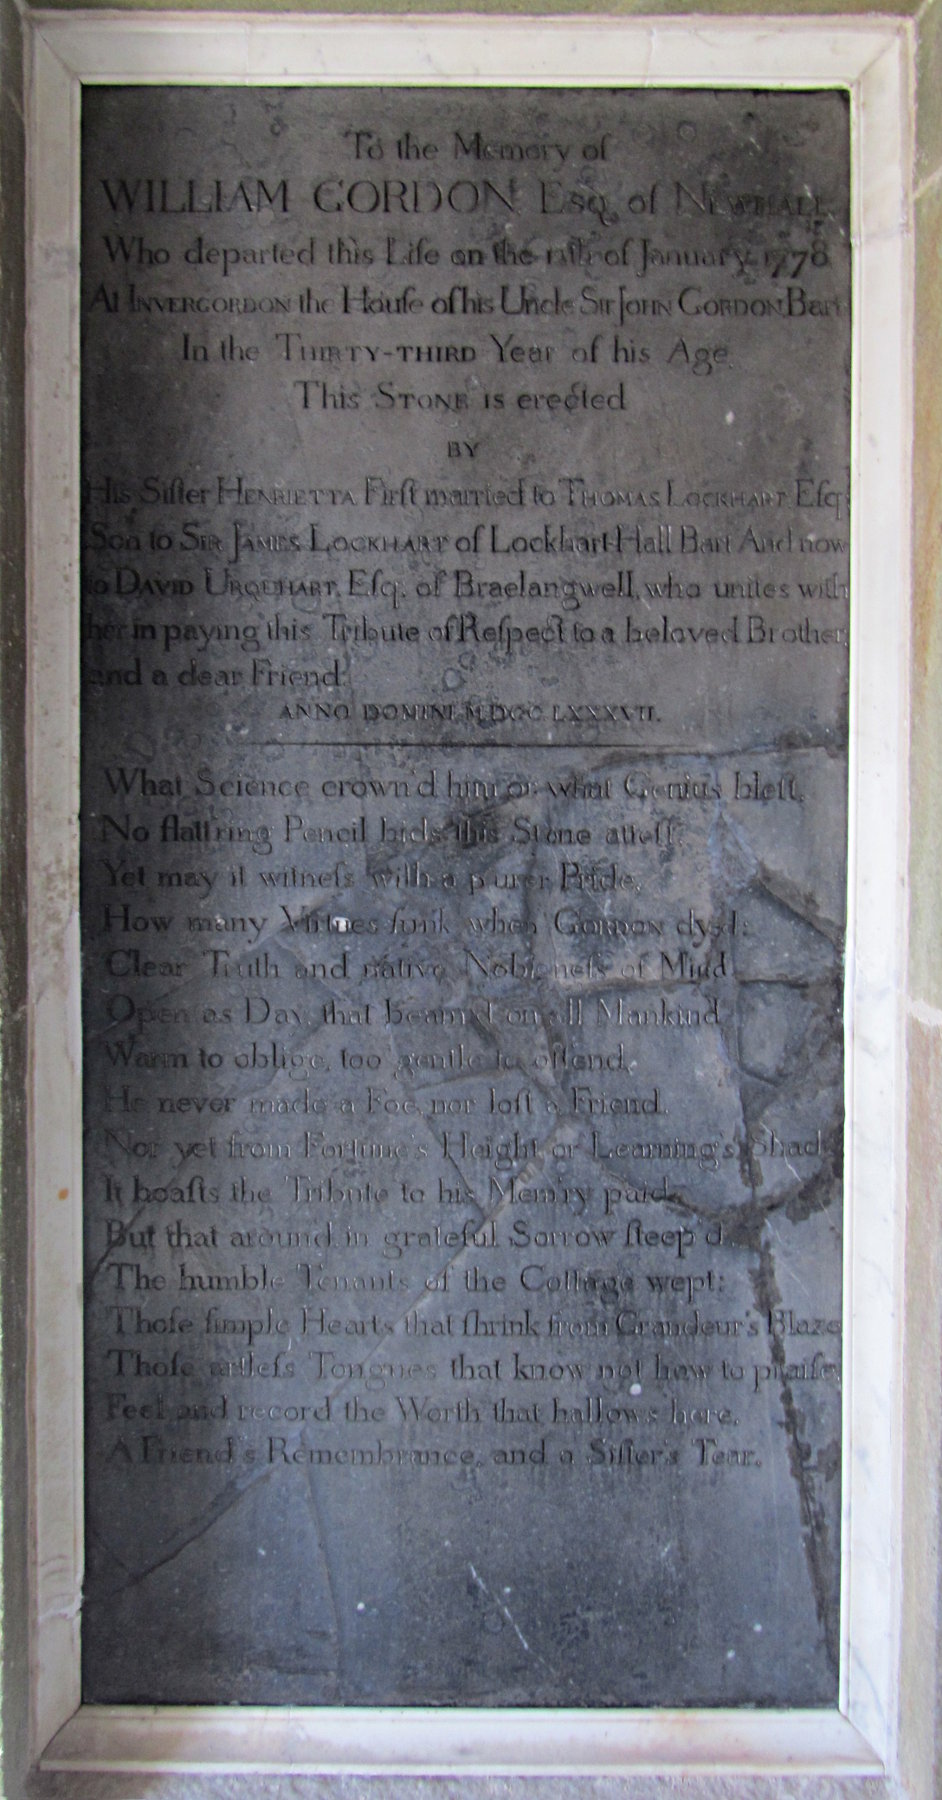 To the Memory of
WILLIAM GORDON Esq. of NEWHALL
Who departed this Life on the of January 1778
At INVERGORDON the Houſe of his Uncle SIR JOHN GORDON Bart
In the THIRTY-THIRD Year of his Age
This STONE is erected
BY
His Siſter HENRIETTA Firſt married to THOMAS LOCKHART Eſq;
Son to SIR JAMES LOCKHART of Lockhart-Hall Bart And now
to DAVID URQUHART, Eſq. of Braelangwell, who unites with
her in paying this Tribute of Reſpect to a beloved Brother
and a dear Friend.
ANNO DOMINI MDCCLXXXVII.
What Science crown'd him or what Genius bleſt,
No flatt'ring Pencil bids this Stone atteſt;
Yet may it witneſs with a purer Pride,
How many Virtues ſunk when GORDON dy'd:
Clear Truth and native Nobleneſs of Mind
Open as Day, that beam'd on all Mankind
Warm to oblige, too gentle to offend,
He never made a Foe, nor loſt a Friend.
Nor yet from Fortune's Height or Learning's Shade
It boaſts the Tribute to his Mem'ry paid,
But that around in grateful Sorrow ſteep'd
The humble Tenants of the Cottage wept:
Thoſe ſimple Hearts that ſhrink from Grandeur's Blaze
Thoſe artleſs Tongues that know not how to praiſe,
Feel and record the Worth that hallows here,
A Friend's Remembrance, and a Siſter's Tear.